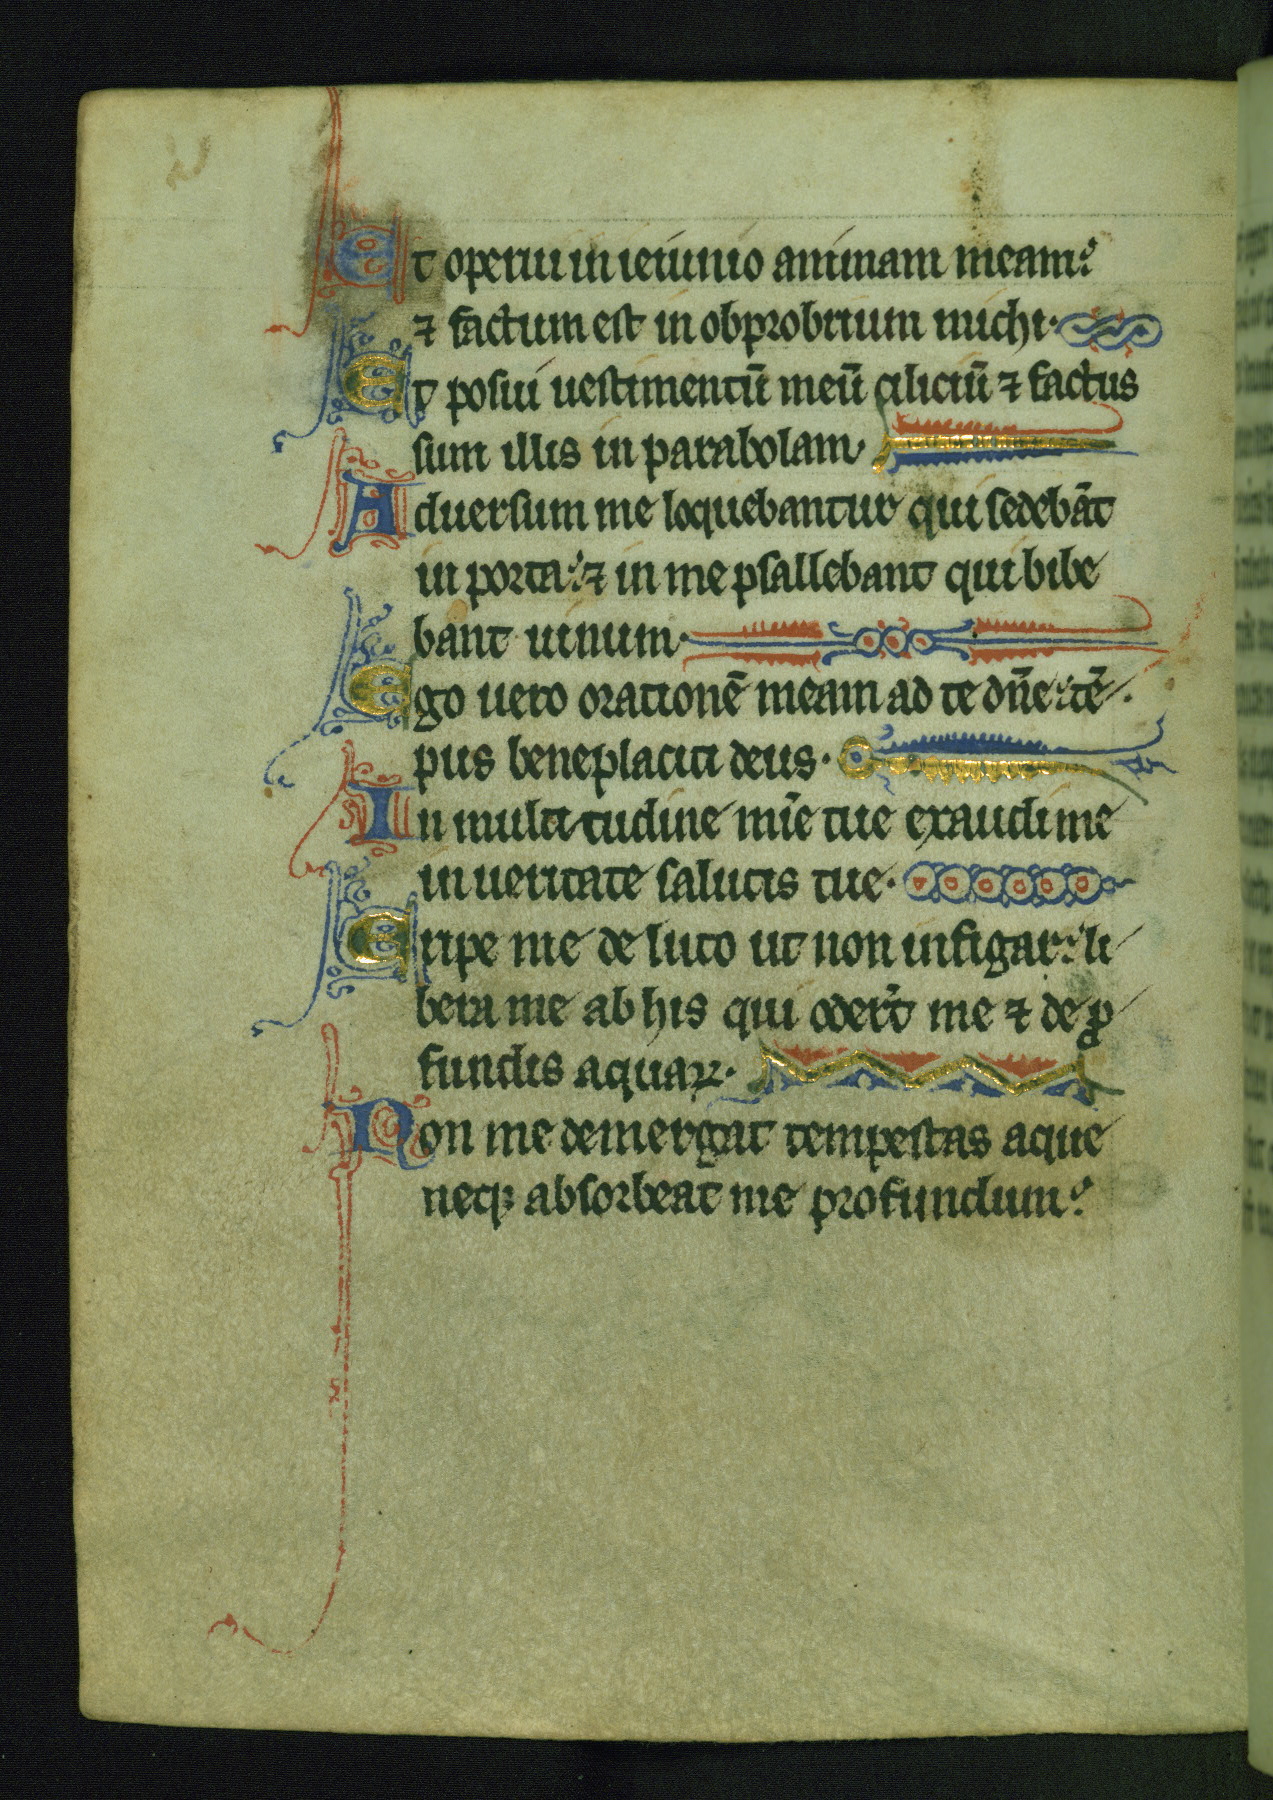 Et operui in ieiunio animam meam:
⁊ factum est in obprobrium michi·
Et posui uestimentū meū ciliciū ⁊ factus
sum illis in parabolam·
Aduersum me loquebantur qui sedebāt
in porta: ⁊ in me psallebant qui bibe
bant uinum·
Ego uero orationē meam ad te dn̄e: tē
pus beneplaciti deus·
In multitudine mīe tue exaudi me
in ueritate salutis tue·
Eripe me de luto ut non infigar: li
bera me ab his qui oder̄t me ⁊ de ꝓ
fundis aquaꝝ·
Non me demergat tempestas aque
neqꝫ absorbeat me profundum: